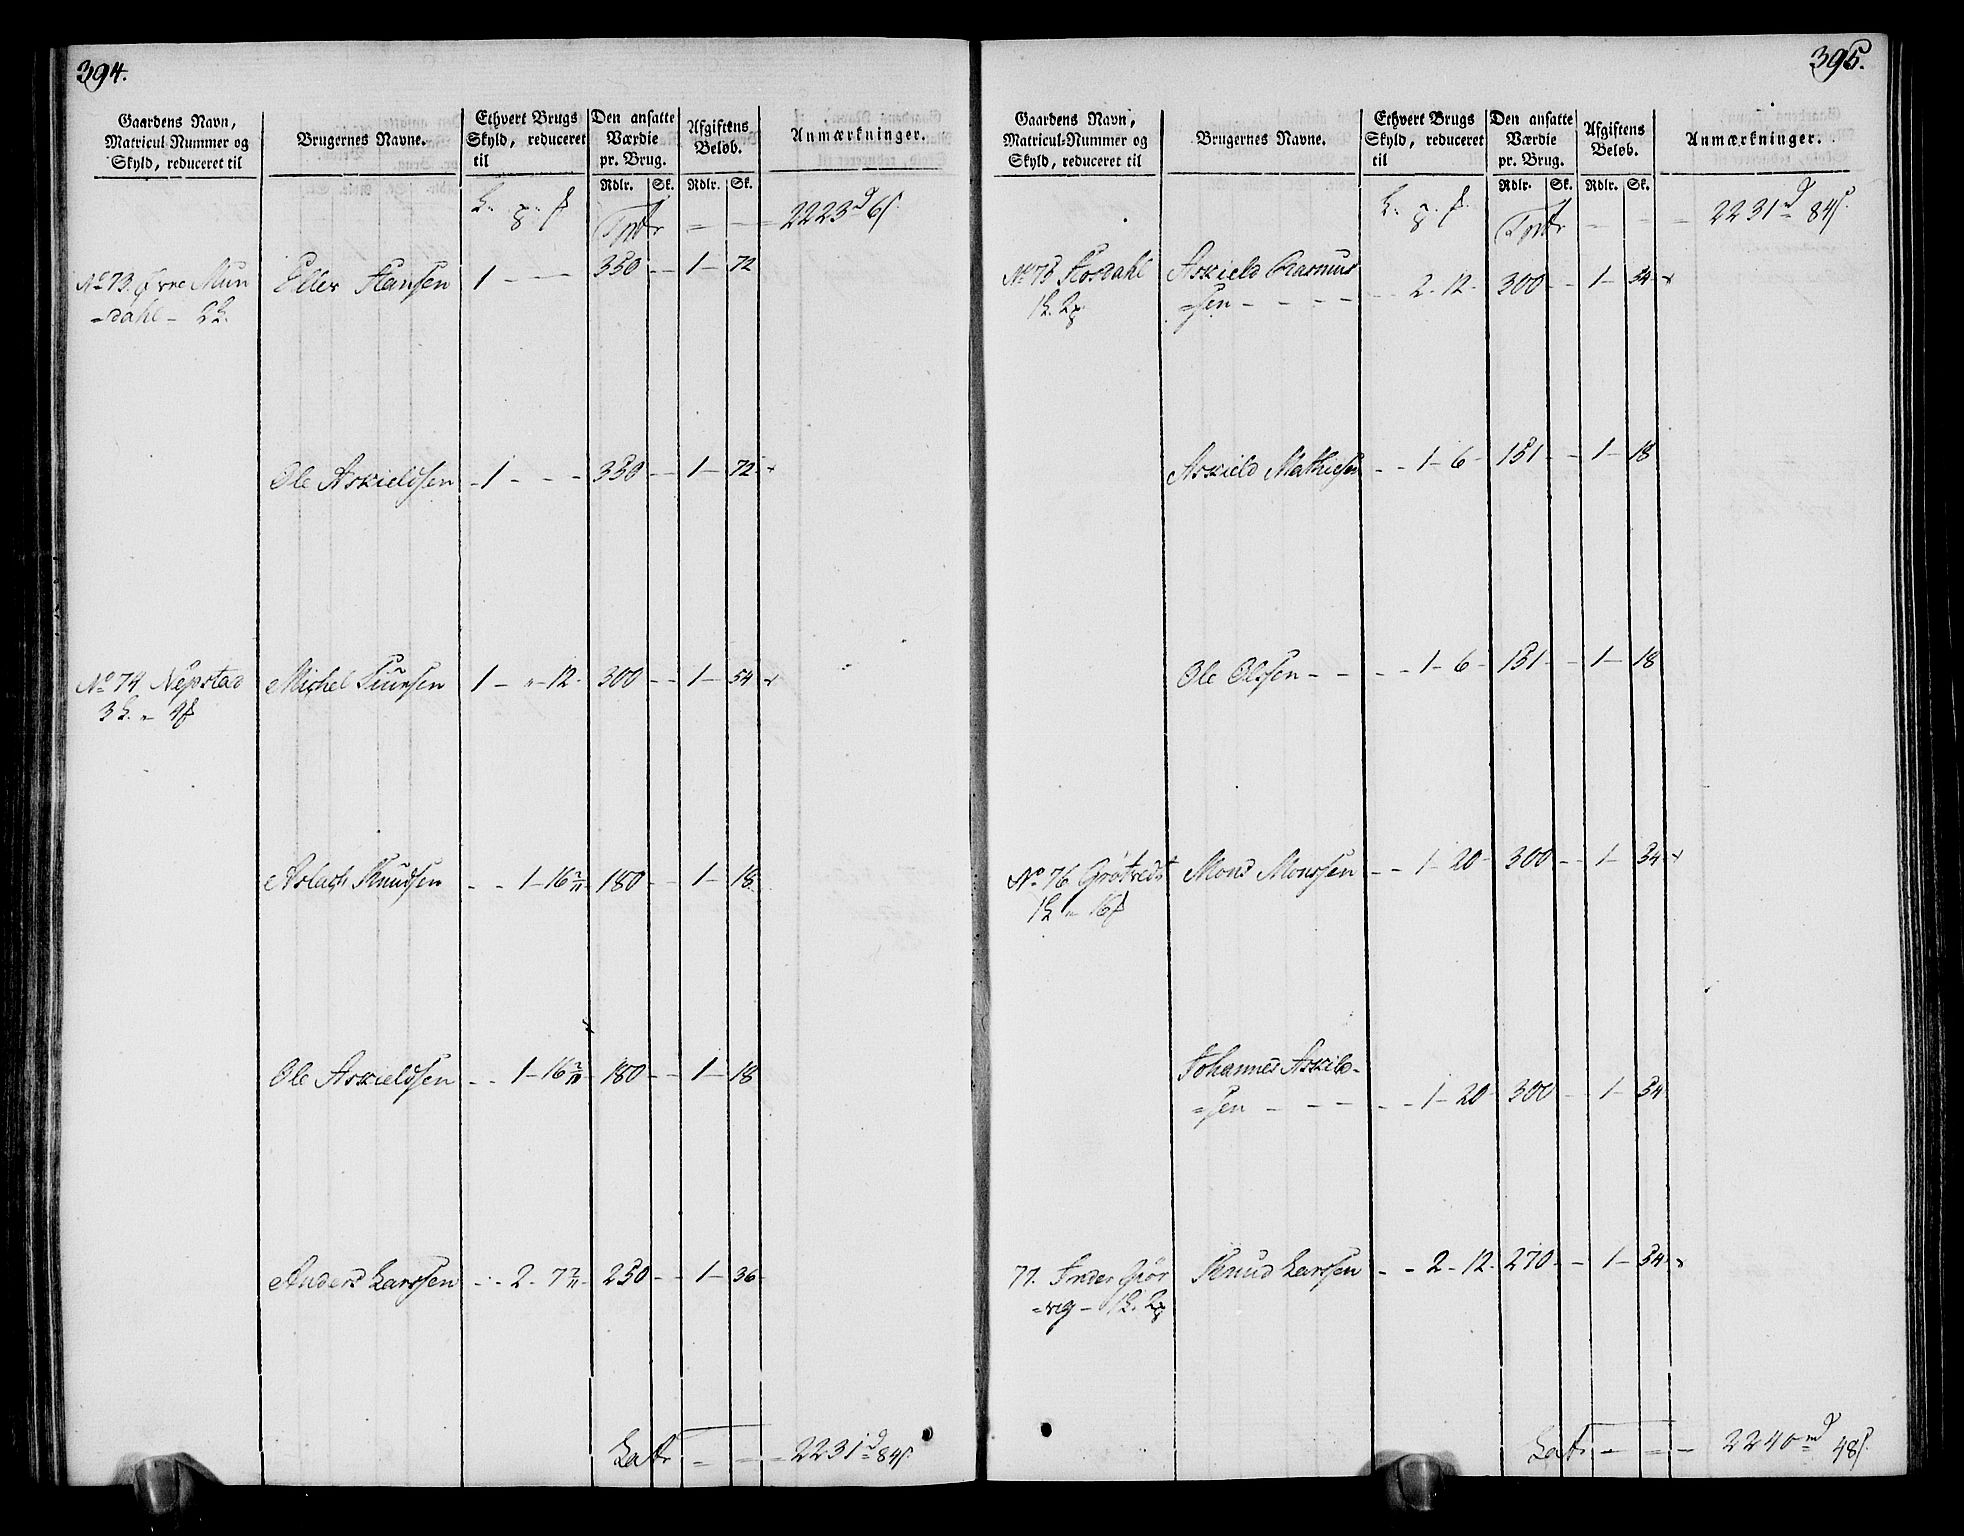 394.
Gaardens Navn, Matricul-Nummer og Skyld, reduceret til
Brugernes Navne.
Ethvert Brugs Skyld, reduceret til
Den ansatte Værdie pr. Brug.
Afgiftens Beløb.
Anmærkninger.
Rdlr. Sk. Rdlr. Sk.
2223 d 6 s.
No 73. Øvre Mun Eller Hansen 1 - - 350 - 1 - 72
=dahl - 2 L.
Ole Askieldsen - 1 - - 350 - 1 - 72
No 74 Nepstad Michel Siursen 1 - " - 12 - 300 - 1 - 54
3 L. " 4 s
Aslach Knudsen - - 1 - 16 2/11 180 - 1 - 18
Ole Askieldsen - - 1 - 16 2/11 180 - 1 - 18
Anders Larssen - - 2 - 7 7/11 250 - 1 - 36
Latr - - 2231 d 84 s.
395.
Gaardens Navn, Matricul-Nummer og Skyld, reduceret til
Brugernes Navne.
Ethvert Brugs Skyld, reduceret til
Den ansatte Værdie pr. Brug.
Afgiftens Beløb.
Anmærkninger.
Rdlr. Sk. Rdlr. Sk.
2231 d 84 s.
No 75 Fosdahl Askield Rasmus
1 L. 2 p =sen - - - - 2 - 12 - 300 - 1 - 54
Askield Mathiesen - - 1 - 6 - 151 - 1 - 18
Ole Olssen - - - - 1 - 6 - 151 - 1 - 18
No 76 Grøtvedt Mons Monssen - - 1 - 20 - 300 - 1 - 54
1 L " 16 s
Johannes Askild-
=sen - - - - 1 - 20 - 300 - 1 - 54
77. Indre Giør Knud Larssen - - 2 - 12 - 270 - 1 - 54
=vig - 1 L. 2 p
Latr - - - 2240 d 48 s.